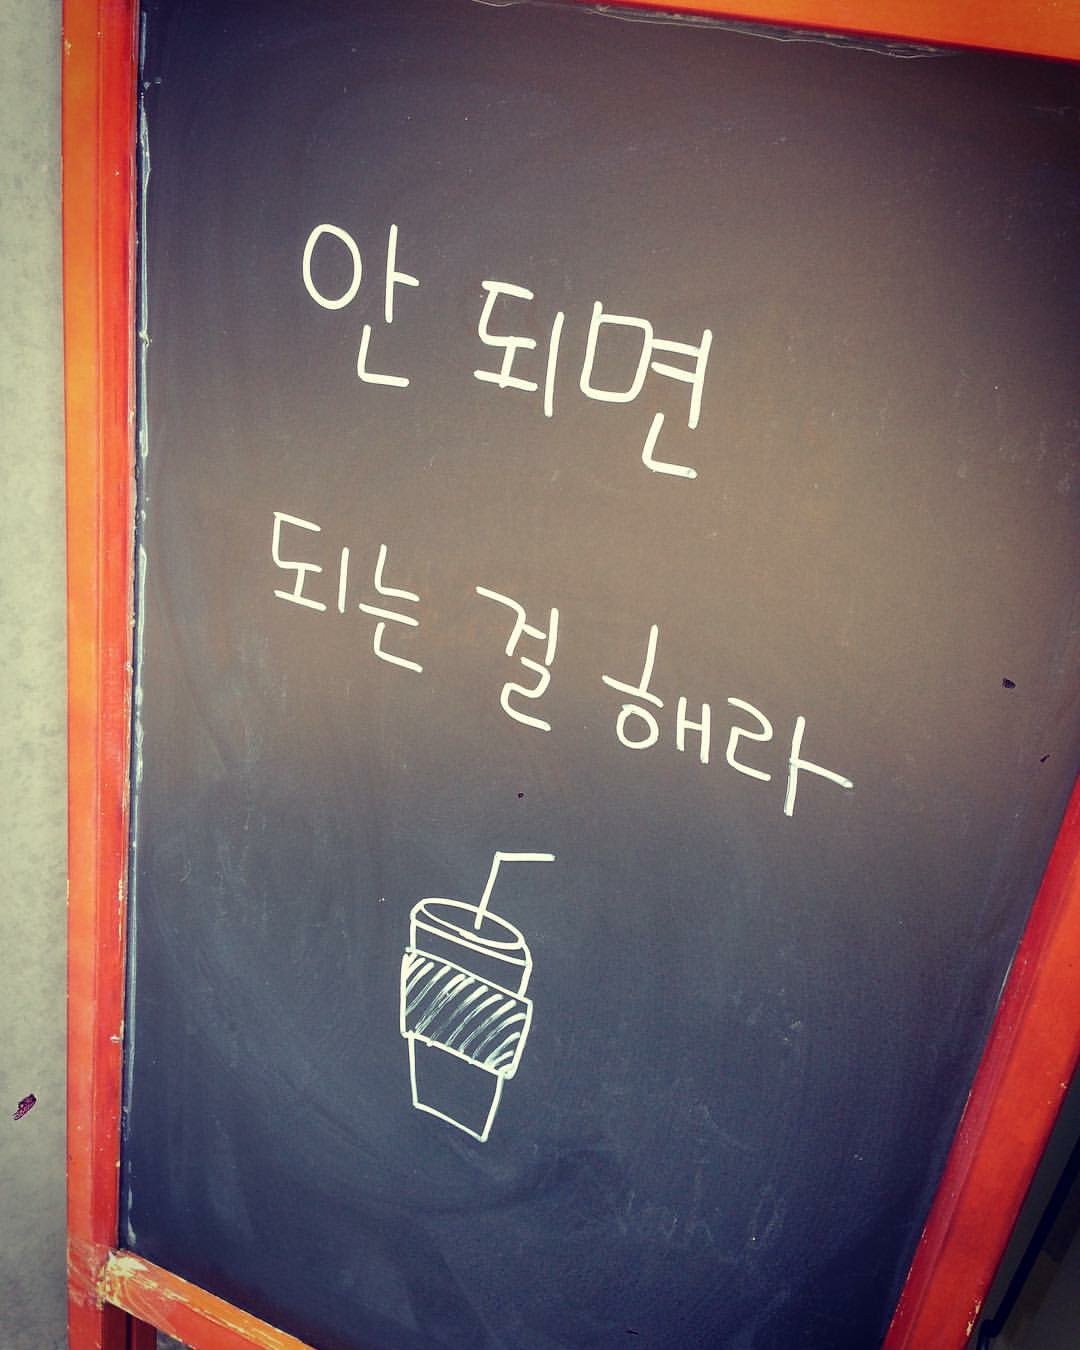 안 되면
되는 걸 해라